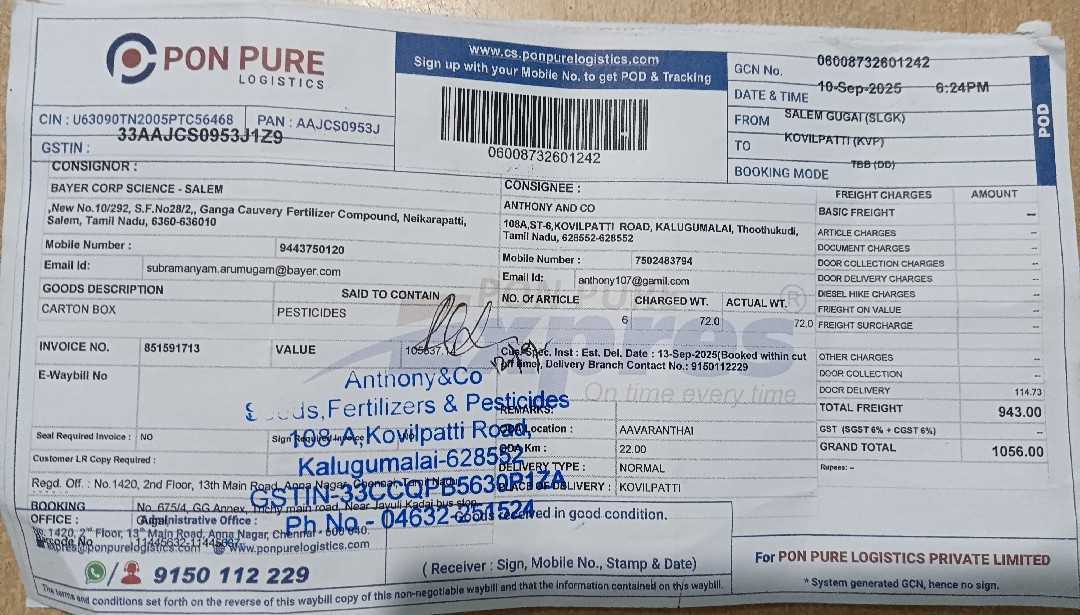 PON PURE
LOGISTICS
www.cs.ponpurelogistics.com
Sign up with your Mobile No. to get POD & Tracking
06008732601242
GCN No. 06008732601242
DATE & TIME 10-Sep-2025 6:24PM
FROM SALEM GUGAI (SLGK)
TO KOVILPATTI (KVP)
BOOKING MODE TBB (DD)
POD
CIN : U63090TN2005PTC56468 PAN : AAJCS0953J
GSTIN : 33AAJCS0953J1Z9
CONSIGNOR :
BAYER CORP SCIENCE - SALEM
,New No.10/292, S.F.No28/2,, Ganga Cauvery Fertilizer Compound, Neikarapatti,
Salem, Tamil Nadu, 6360-636010
Mobile Number : 9443750120
Email Id: subramanyam.arumugam@bayer.com
CONSIGNEE :
ANTHONY AND CO
108A,ST-6,KOVILPATTI ROAD, KALUGUMALAI, Thoothukudi,
Tamil Nadu, 628552-628552
Mobile Number : 7502483794
Email Id: anthony107@gamil.com
GOODS DESCRIPTION SAID TO CONTAIN NO. OF ARTICLE CHARGED WT. ACTUAL WT.
CARTON BOX PESTICIDES 6 72.0 72.0
INVOICE NO. 851591713 VALUE
E-Waybill No
Cus. Spec. Inst : Est. Del. Date : 13-Sep-2025(Booked within cut
off time), Delivery Branch Contact No.: 9150112229
PON PURE
Xpres ®
On time every time
REMARKS:
ODA Location : AAVARANTHAI
ODA Km : 22.00
DELIVERY TYPE : NORMAL
PLACE OF DELIVERY : KOVILPATTI
Seal Required Invoice : NO Sign Required Invoice
Customer LR Copy Required :
Anthony&Co
Seeds,Fertilizers & Pesticides
108-A,Kovilpatti Road,
Kalugumalai-628552
GSTIN-33CCQPB5630R1ZA
Ph No - 04632-251524
FREIGHT CHARGES AMOUNT
BASIC FREIGHT --
ARTICLE CHARGES --
DOCUMENT CHARGES --
DOOR COLLECTION CHARGES --
DOOR DELIVERY CHARGES --
DIESEL HIKE CHARGES --
FRIEGHT ON VALUE --
FREIGHT SURCHARGE --
OTHER CHARGES --
DOOR COLLECTION --
DOOR DELIVERY 114.73
TOTAL FREIGHT 943.00
GST (SGST 6% + CGST 6%) --
GRAND TOTAL 1056.00
Rupees: --
Regd. Off. : No.1420, 2nd Floor, 13th Main Road, Anna Nagar, Chennai, Tamil Nadu
BOOKING OFFICE : No. 675/4, GG Annex, Trichy main road, Near Javuli Kadai bus stop
Gugai,
Administrative Office :
1420, 2nd Floor, 13th Main Road, Anna Nagar, Chennai - 600 040.
xpres@ponpurelogistics.com www.ponpurelogistics.com
9150 112 229
Goods received in good condition.
( Receiver : Sign, Mobile No., Stamp & Date)
For PON PURE LOGISTICS PRIVATE LIMITED
* System generated GCN, hence no sign.
The terms and conditions set forth on the reverse of this waybill copy of this non-negotiable waybill and that the information contained on this waybill.